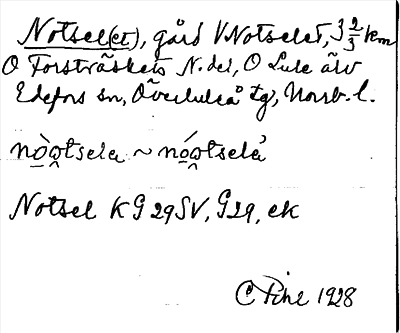 Notsel(et), gård V Notselet, 3 2/3 km
O Forsträskets N. del, O Lule älv
Edefors sn, Överluleå tg, Norrb. l.
nòo̭tsela ~ nóo̭tselȧ
Notsel KG 29 SV, G 29, ek
C Pihl 1928